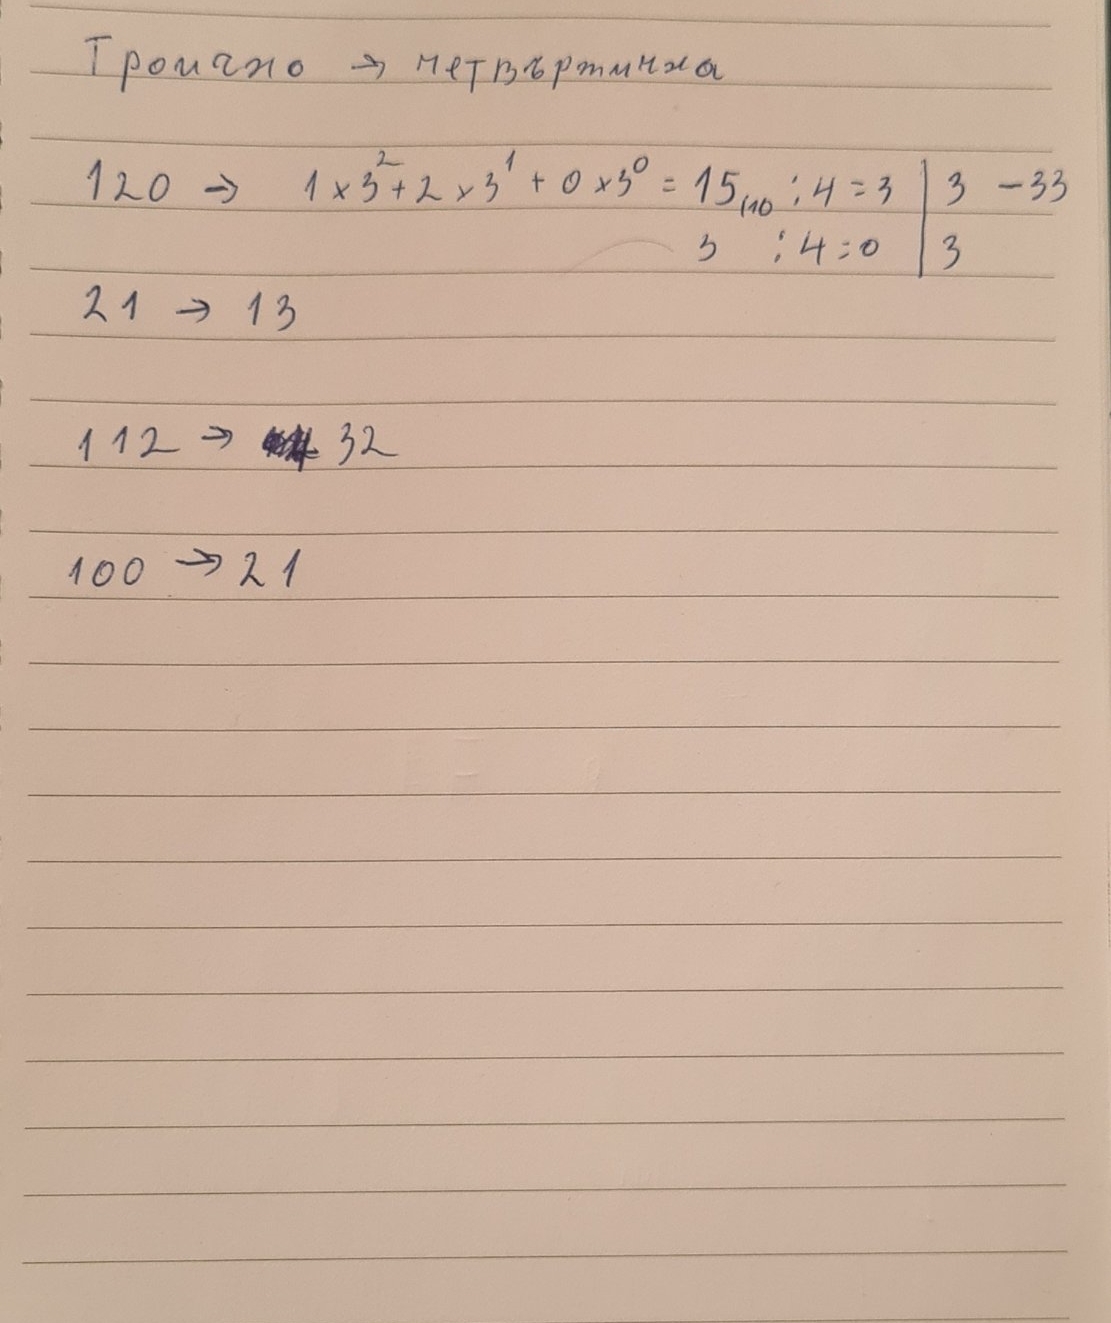 Троично → четвъртична
120 → 1 x 3² + 2 x 3¹ + 0 x 3⁰ = 15₍₁₀ : 4 = 3 | 3 - 33
3 : 4 = 0 | 3
21 → 13
112 → 32
100 → 21